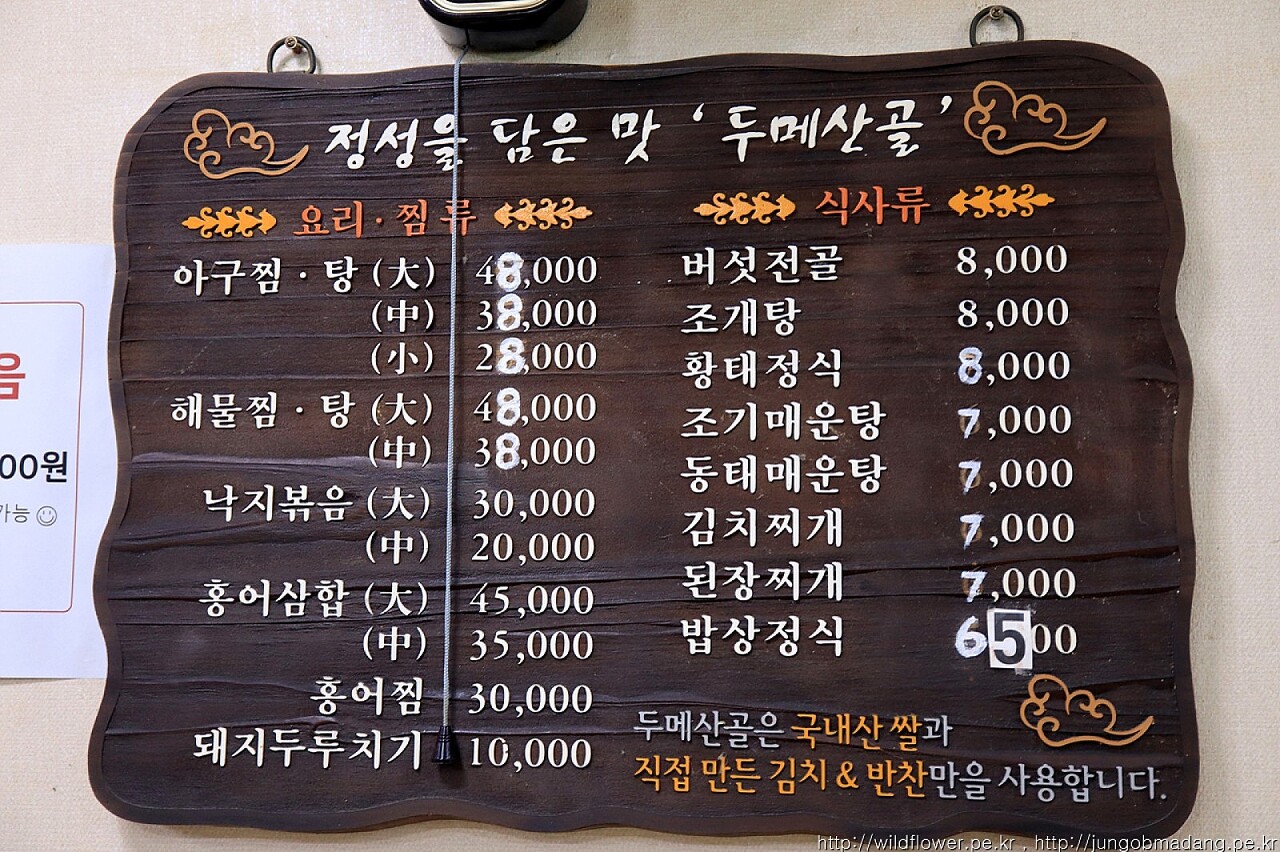 정성을 담은 맛 ‘두메산골’
요리·찜류
아구찜·탕 (大) 48,000
(中) 38,000
(小) 28,000
해물찜·탕 (大) 48,000
(中) 38,000
낙지볶음 (大) 30,000
(中) 20,000
홍어삼합 (大) 45,000
(中) 35,000
홍어찜 30,000
돼지두루치기 10,000
식사류
버섯전골 8,000
조개탕 8,000
황태정식 8,000
조기매운탕 7,000
동태매운탕 7,000
김치찌개 7,000
된장찌개 7,000
밥상정식 6500
두메산골은 국내산 쌀과
직접 만든 김치 & 반찬만을 사용합니다.
음
00원
가능
http://wildflower.pe.kr , http://jungobmadang.pe.kr